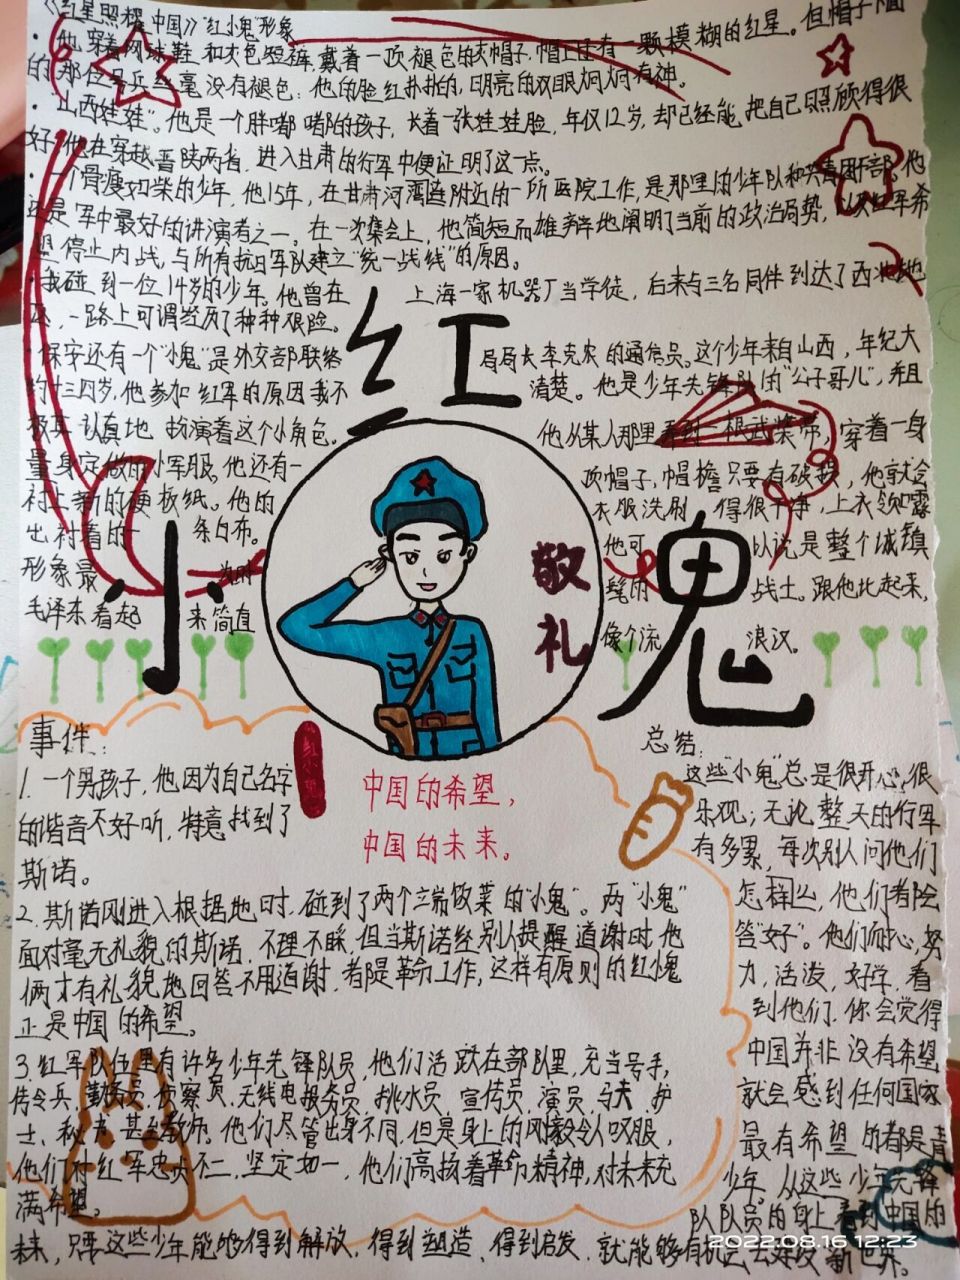 《红星照耀中国》"红小鬼"形象
·他穿着网球鞋和灰色短裤,戴着一顶褪色的灰帽子,帽上还有一颗模糊的红星。但帽子下面
的那位号兵丝毫没有褪色:他的脸红扑扑的,明亮的双眼炯炯有神。
·"山西娃娃"。他是一个胖嘟嘟的孩子,长着一张娃娃脸,年仅12岁,却已经能把自己照顾得很
好,他在穿越晋陕两省,进入甘肃的行军中便证明了这一点。
·一个骨瘦如柴的少年,他15年,在甘肃河湾莲附近的一所医院工作,是那里的少年队和共青团干部。他
还是军中最好的讲演者之一。在一次集会上,他简短而雄辩地阐明了当前的政治局势,以及红军希
望停止内战,与所有抗日军队建立"统一战线"的原因。
·我碰到一位14岁的少年。他曾在上海一家机器厂当学徒,后来与三名同伴到达了西北
,一路上可谓经历了种种艰险。
·保安还有一个"小鬼"是外交部联络局局长李克农的通信员。这个少年来自山西,年纪大
约十三四岁,他参加红军的原因我不清楚。他是少年先锋队的"公子哥儿",并且
极其认真地扮演着这个小角色。他从某人那里弄到一根武装带,穿着一身
量身定做的小军服。他还有一顶帽子,帽檐只要有破损,他就会
衬上新的硬板纸。他的衣服洗刷得很干净,上衣领口露
出衬着的一条白布。他可以说是整个城镇
形象最为时髦的战士。跟他比起来,
毛泽东看起来简直像个流浪汉。
红
小鬼
敬
礼
红小鬼
中国的希望,
中国的未来。
事件:
1.一个男孩子,他因为自己名字
的谐音不好听,特意找到了
斯诺。
2.斯诺刚进入根据地时,碰到了两个端饭菜的"小鬼"。两"小鬼"
面对毫无礼貌的斯诺,不理不睬,但当斯诺经别人提醒道谢时,他
俩才有礼貌地回答不用道谢,都是革命工作,这样有原则的红小鬼
正是中国的希望。
3.红军队伍里有许多少年先锋队员,他们活跃在部队里,充当号手,
传令兵,勤务员,侦察员,无线电报务员,挑水员,宣传员,演员,马夫,护
士,秘书,甚至教师。他们尽管出身不同,但是身上的刚毅令人叹服,
他们对红军忠贞不二,坚定如一,他们高扬着革命精神,对未来充
满希望。
总结:
这些"小鬼"总是很开心,很
乐观;无论整天的行军
有多累,每次别人问他们
怎样么,他们都会
答"好"。他们耐心,努
力,活泼,好学,看
到他们,你会觉得
中国并非没有希望
就会感到任何国家
最有希望的都是青
少年。从这些少年先锋
队队员的身上看到中国的
未来,只要这些少年能够得到解放,得到塑造,得到启发,就能够有机会去建设新世界。
2022.08.16 12:23